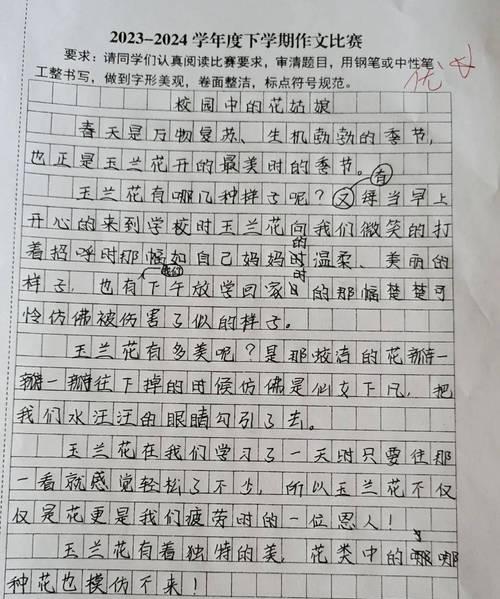 2023-2024学年度下学期作文比赛
要求：请同学们认真阅读比赛要求，审清题目，用钢笔或中性笔
工整书写，做到字形美观，卷面整洁，标点符号规范。
优
校园中的花姑娘
春天是万物复苏、生机勃勃的季节，
也正是玉兰花开的最美时的季节。
有
玉兰花有哪几种样子呢？又每当早上
开心的来到学校时玉兰花向我们微笑的打
的
着招呼时那幅如自己妈妈时温柔、美丽的
我们 时
样子，也有下午放学回家的那幅楚楚可
怜仿佛被伤害了似的样子。
玉兰花有多美呢？是那皎洁的花瓣一
瓣一瓣往下掉的时候仿佛是仙女下凡，把
我们水汪汪的眼睛勾引了去。
玉兰花在我们学习了一天时只要往那
一看就感觉轻松了不少，所以玉兰花不仅
仅是花更是我们疲劳时的一位恩人！
玉兰花有着独特的美，花类中的哪
种花也模仿不来！